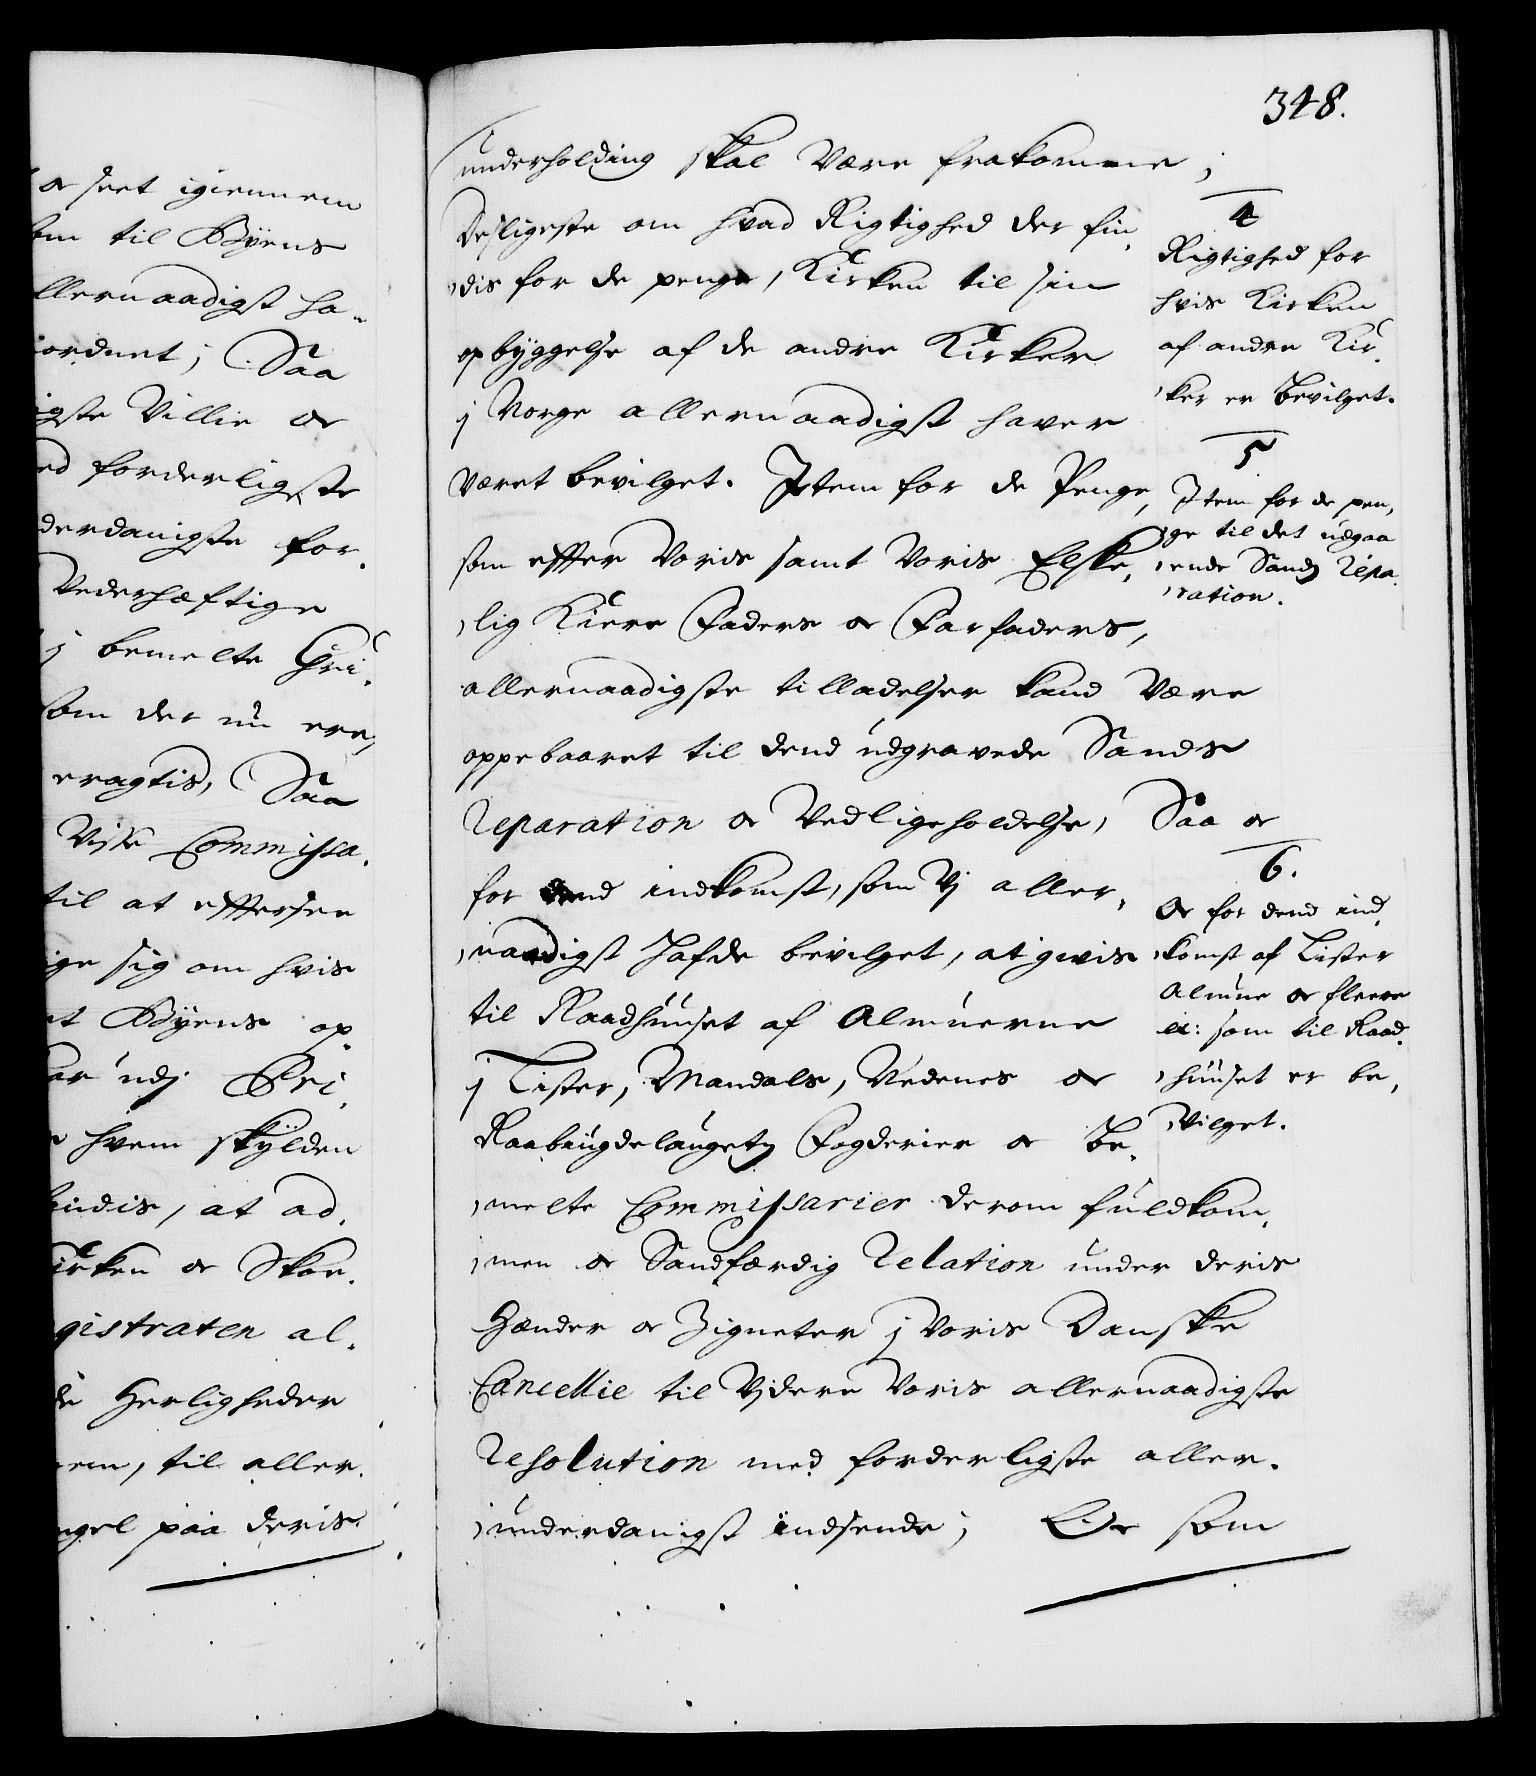 348.
& seet igiennem
om til Byens
llernaadigst ha„
ordnet; Saa
igste Villie &
ed forderligste
derdanigste for„
Vederhæftige
j bemelte Chri„
som der nu ere,
eragtis, Saa
Visse Commissa„
til at effterseе
ige sig om hvis
et Byens op„
ær udj Pri„
hvem skylden
findis, at ad„
Kirken & Skoe„
gistraten al„
de Herligheder
em, til aller„
ngel paa deris
underholding skal være frakomme;
Desligeste om hvad Rigtighed der fin„
„dis for de penge, Kirken til sin
opbyggelse af de andre Kirker
j Norge allernaadigst haver
været bevilget. Item for de Penge,
som effter Voris samt Voris Elske„
„lig Kiere Faders & Farfaders,
allernaadigste tilladelser kand være
oppebaaret til dend udgravede Sands
Reparation & Vedligeholdelse, Saa &
for dend indkomst, som Vj aller„
„naadigst hafde bevilget, at givis
til Raadhuuset af Almuerne
j Lister, Mandals, Nedenes &
Raabaugdelaugets Fogderier & be„
„melte Commissarier derom fuldkom„
„men & Sandfærdig Relation under deris
Hænder & Zigneter j Voris Danske
Cancellie til Vjdere Voris allernaadigste
Resolution med forderligste aller„
„underdanigst indsende; Og som
4
Rigtighed for
hvis Kirken
af andre Kir„
„ker er bevilget.
5
Item for de pen„
„ge til det udgaa
„ende Sands Repa„
„ration.
6.
& for dend ind„
„komst af Lister
Almue & fleere
A: som til Raad„
„huuset er be„
„vilget.